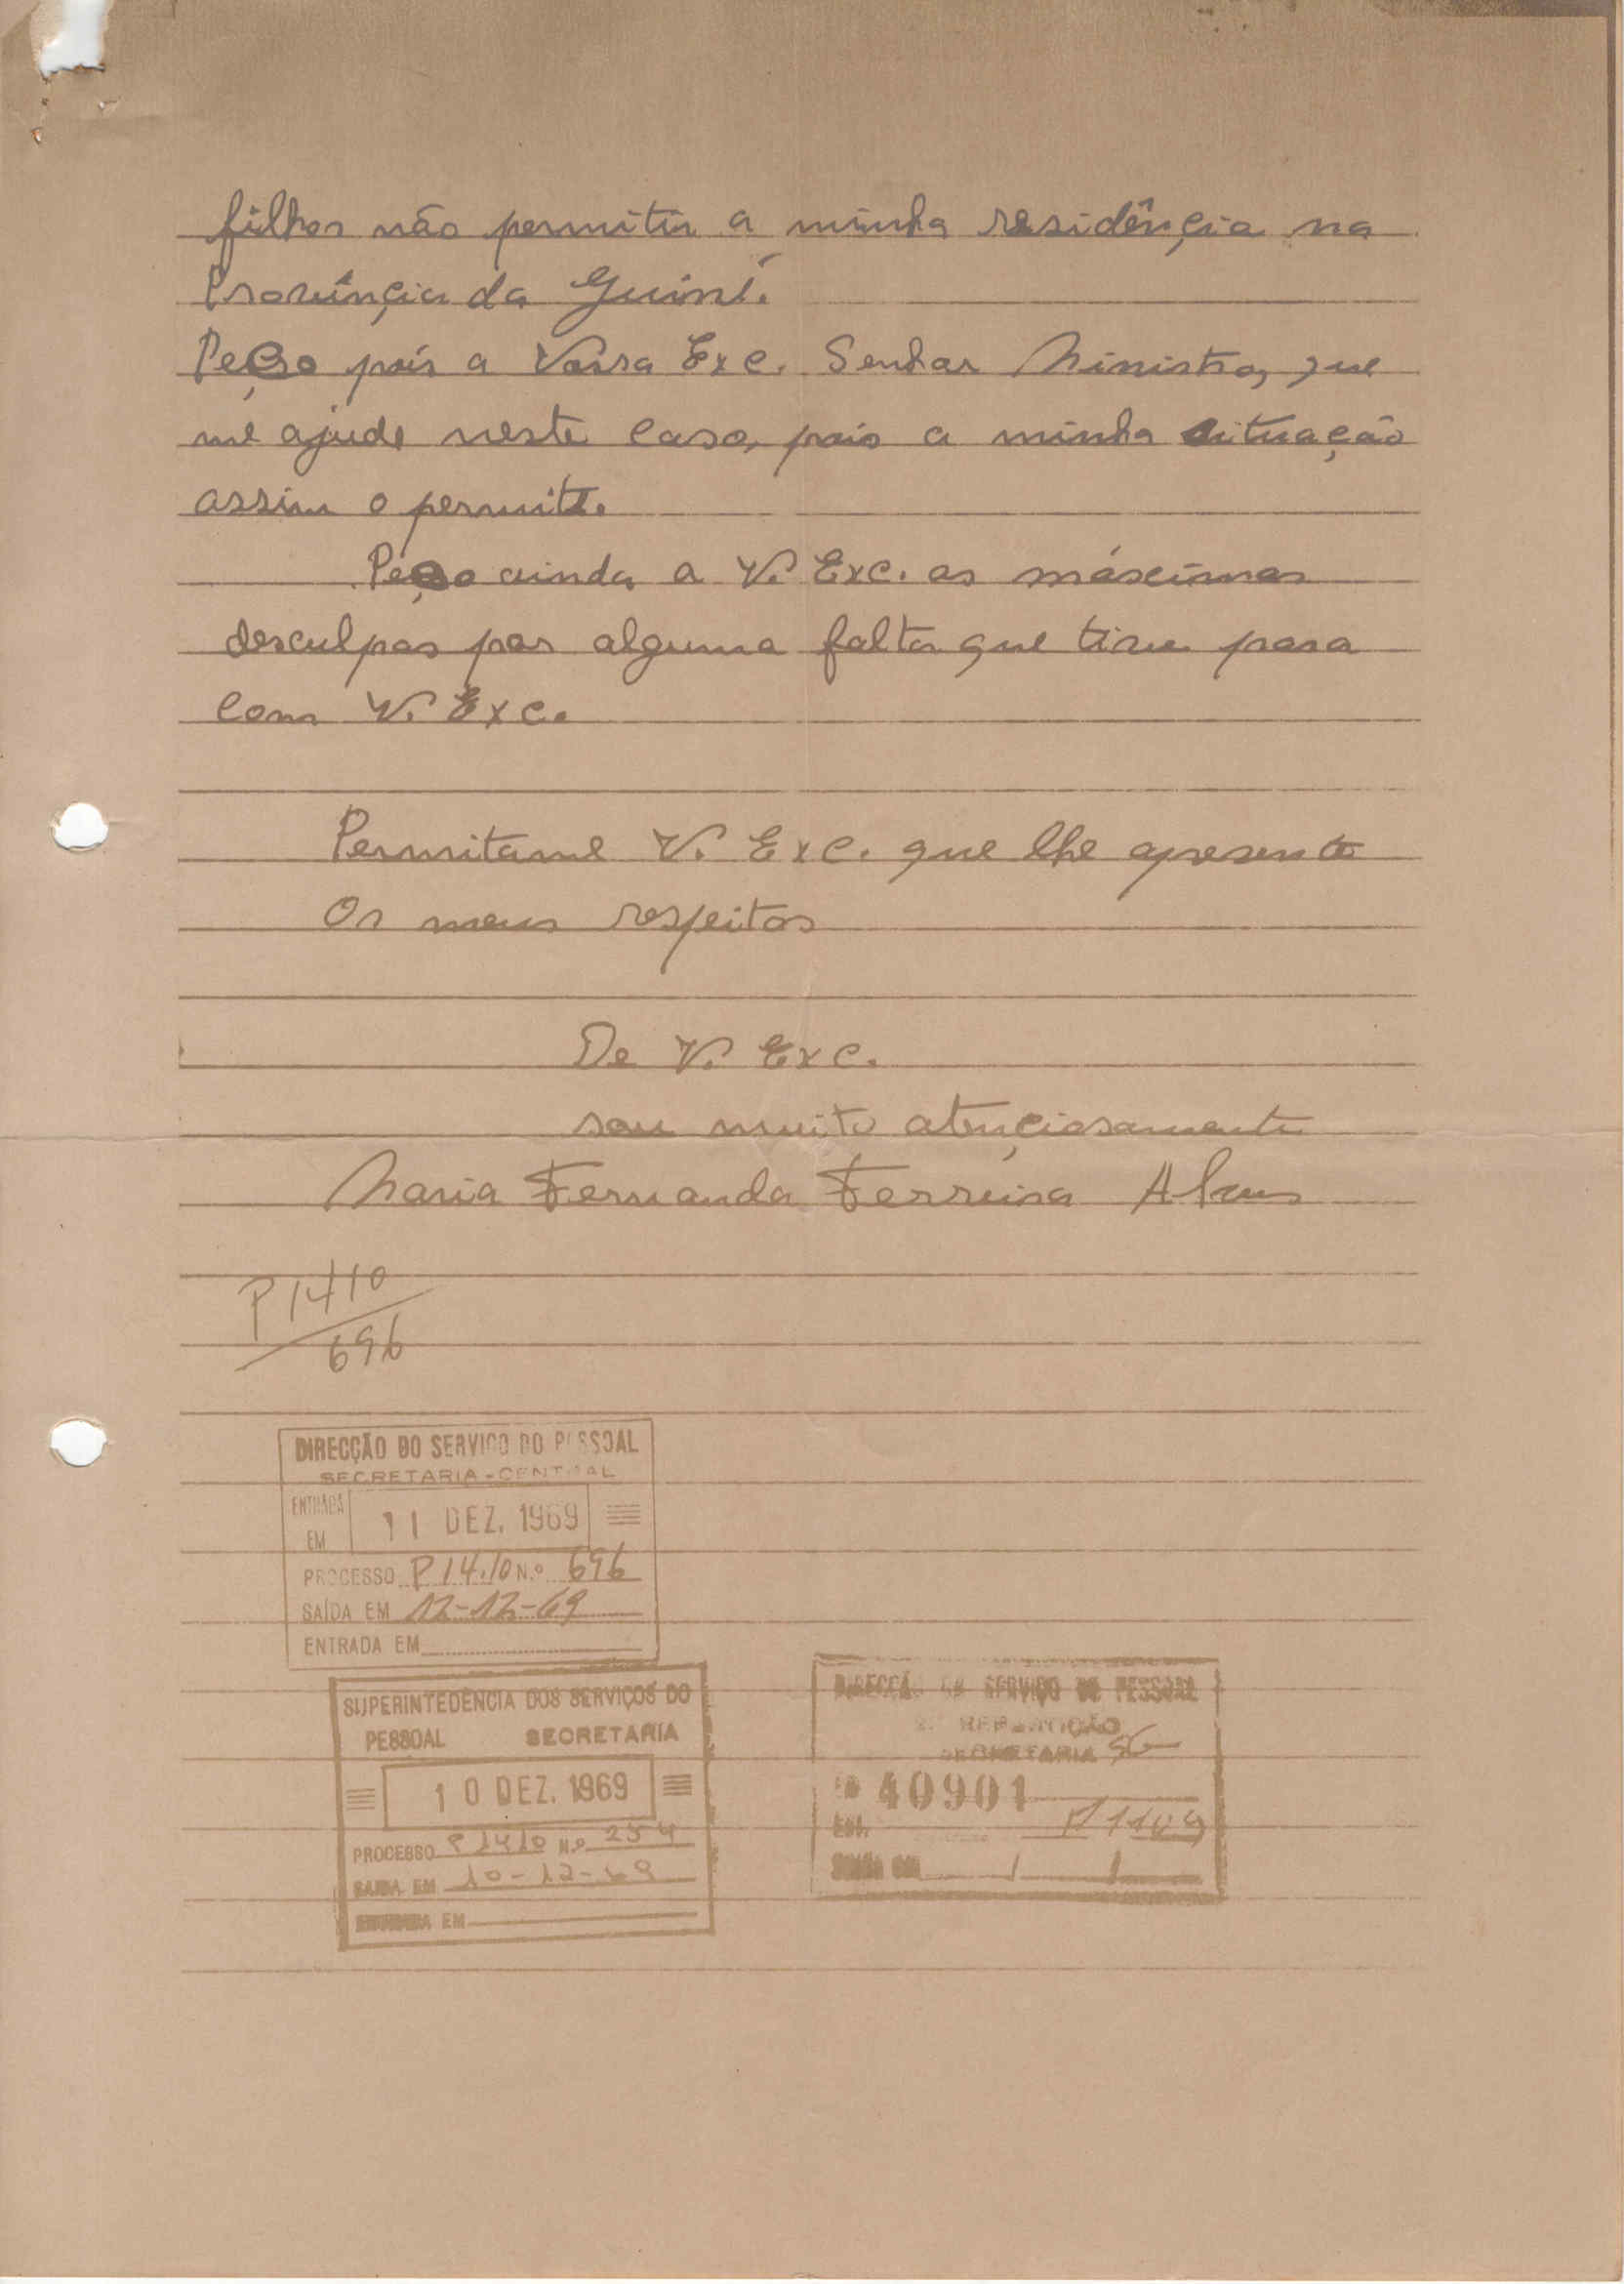 filhos não permitir a minha residênçia na
Provínçia da Guiné.
Peço pois a Vossa Exc. Senhor Ministro, que
me ajude neste caso, pois a minha situação
assim o permite.
Peço ainda a V. Exc. as máscimas
desculpas por alguma falta que tive para
com V. Exc.
Permitame V. Exc. que lhe apresente
Os meus respeitos
De V. Exc.
sou muito atençiosamente
Maria Fernanda Ferreira Alves
P 1410
696
DIRECÇÃO DO SERVIÇO DO PESSOAL
SECRETARIA-CENTRAL
ENTRADA
EM
11 DEZ. 1969
PROCESSO P 14.10 N.º 696
SAÍDA EM 12-12-69
ENTRADA EM
SUPERINTEDENCIA DOS SERVIÇOS DO
PESSOAL SECRETARIA
10 DEZ. 1969
PROCESSO P 1410 N.º 254
SAIDA EM 10-12-69
ENTRADA EM
DIRECÇÃO DO SERVIÇO DO PESSOAL
REPARTIÇÃO
SECRETARIA
40901
Ent. P 1109
SAIDA EM